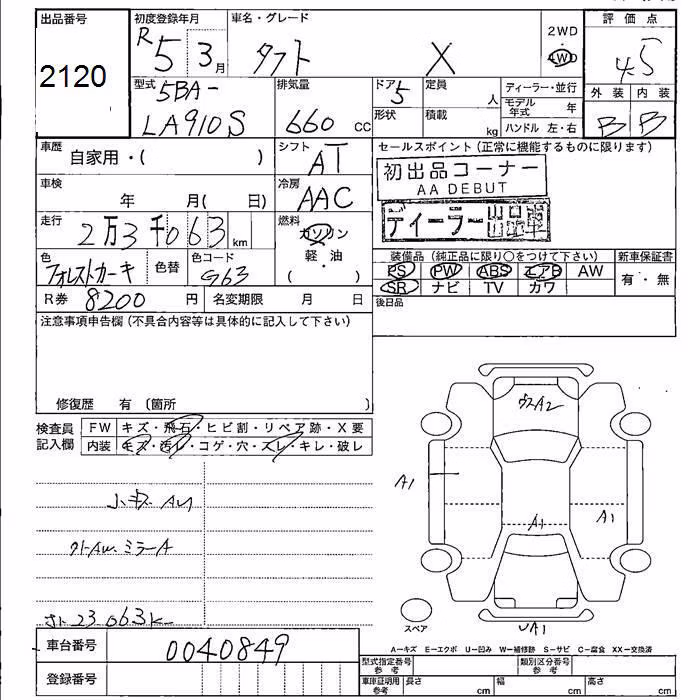 出品番号
2120
初度登録年月
R5 3月
車名・グレード
タフト X
2WD
4WD
評価点
4.5
外装 内装
B B
型式
5BA-
LA910S
排気量
660 cc
ドア
5
定員
人
形状
積載
kg
ディーラー・並行
モデル年式 年
ハンドル 左・右
車歴
自家用・( )
シフト
AT
セールスポイント(正常に機能するものに限ります)
初出品コーナー
AA DEBUT
ディーラー出品車
車検
年 月( 日)
冷房
AAC
走行
2万3千063km
燃料
ガソリン
軽・油
( )
色
フォレストカーキ
色替
色コード
G63
装備品(純正品に限り○をつけて下さい)
PS PW ABS エアB AW
SR ナビ TV カワ
新車保証書
有・無
R券 8200 円
名変期限 月 日
後日品
注意事項申告欄(不具合内容等は具体的に記入して下さい)
修復歴 有〔箇所 〕
検査員記入欄
FW キズ・飛石・ヒビ割・リペア跡・X要
内装 キズ・汚レ・コゲ・穴・スレ・キレ・破レ
ミラーA
23063K
A1
A2
A1
A1
UA1
スペア
A−キズ E−エクボ U−凹み W−補修跡 S−サビ C−腐食 XX−交換済
車台番号
0040849
登録番号
型式指定番号
参考
類別区分番号
参考
車庫証明用
参考
長さ cm
幅 cm
高さ cm